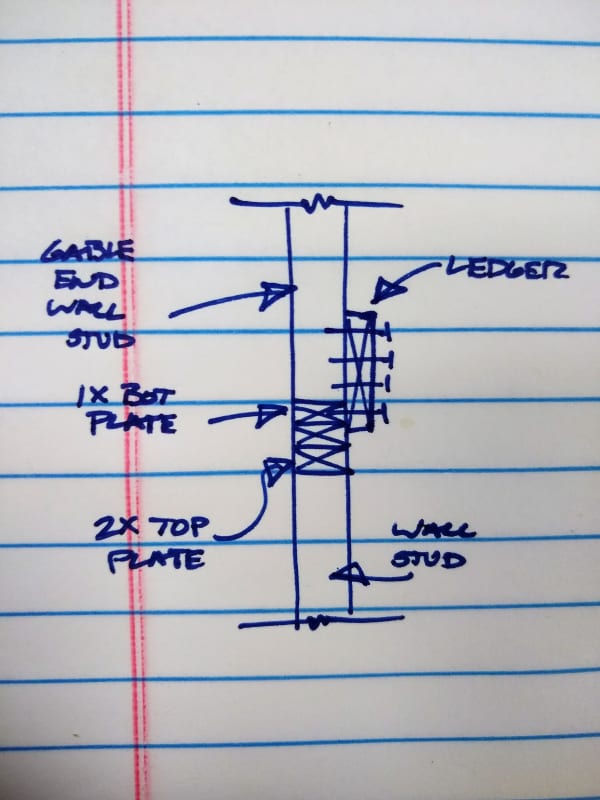 GABLE
END
WALL
STUD
LEDGER
1X BOT
PLATE
2X TOP
PLATE
WALL
STUD